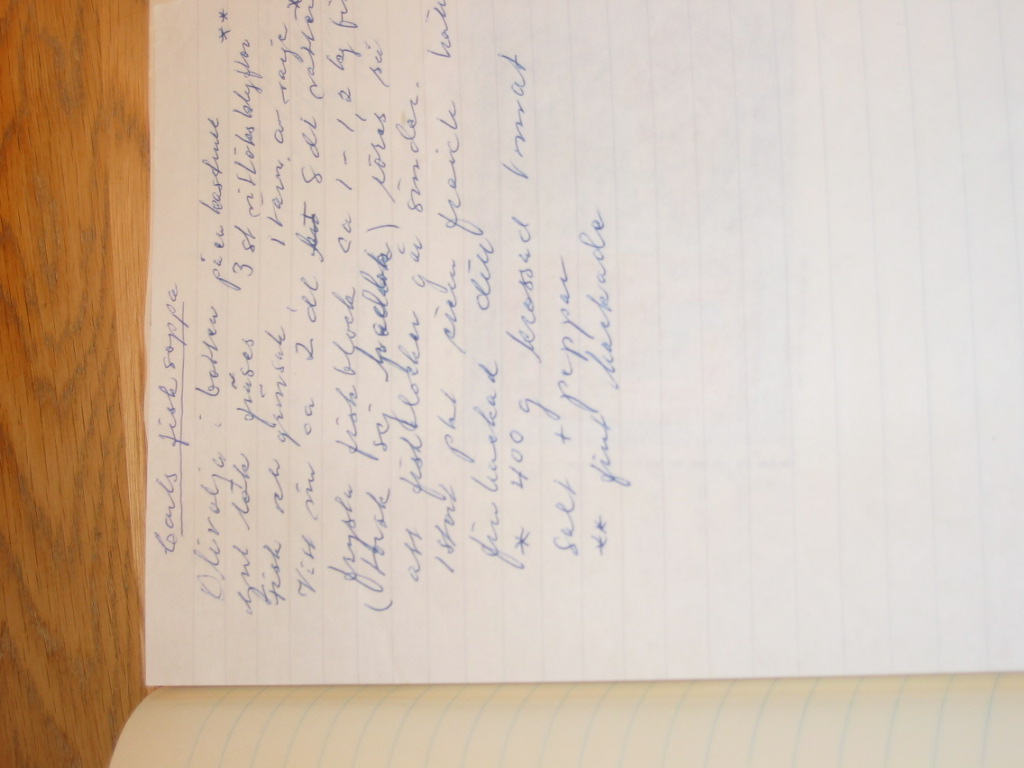 Carls fisksoppa
Olivolja i botten på en kastrull
dynt lök fräses 3 st vitlöksklyftor **
fisk och grönsak. 1 tern.
Vitt vin ca 2 dl 8 dl vatten
frysta fiskblock ca 1-1,2 kg
(torsk sej) röras så
att fiskblocken går sönder.
1 stort pkt
finhackad dill
* 400 g krossad tomat
salt + peppar
** fint hackade